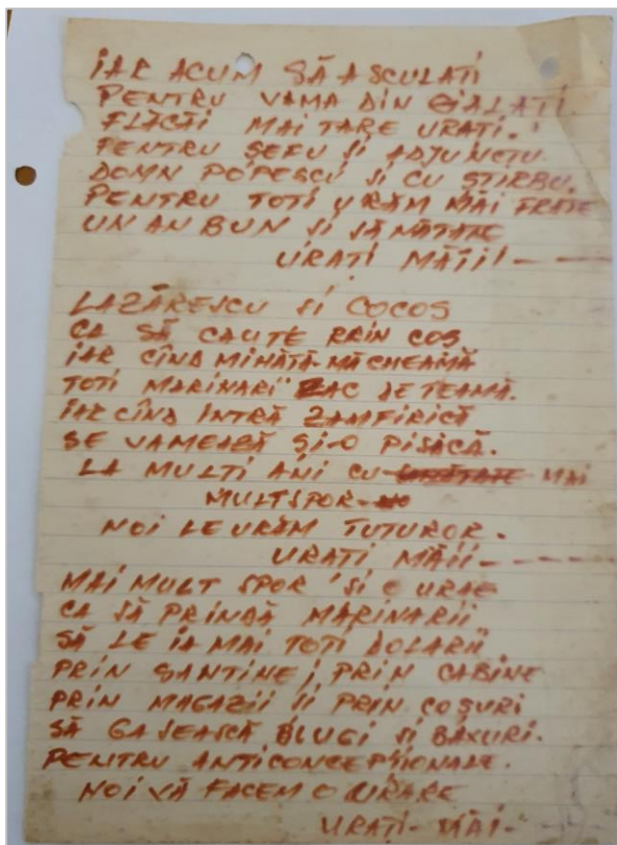 IAR ACUM SĂ ASCULATI
PENTRU VAMA DIN GIALAȚI.
FLĂCĂI MAI TARE URATI.!
PENTRU ȘEFU ȘI ADJUNCTU.
DOMN POPESCU SI CU STIRBU.
PENTRU TOTI URĂM MĂI FRATE
UN AN BUN SI SĂNĂTATE
URATI MĂII - - -
LAZĂRESCU SI COCOS
CA SĂ CAUTE PRIN COS
IAR CÎND MIHĂTĂ-MĂ CHEAMĂ
TOTI MARINARII ZAC DE TEAMĂ.
IAR CÎND INTRĂ ZAMFIRICĂ
SE VAMEAZĂ ȘI-O PISICĂ.
LA MULTI ANI CU MAI
MULT SPOR
NOI LE URĂM TUTUROR.
URATI MĂII - - - -
MAI MULT SPOR SI O URAE
CA SĂ PRINDĂ MARINARII
SĂ LE IA MAI TOTI DOLARII.
PRIN SANTINE, PRIN CABINE
PRIN MAGAZII SI PRIN COȘURI
SĂ GASEASCĂ BLUGI SI BAXURI.
PENTRU ANTICONCEPȚIONALE.
NOI VĂ FACEM O URARE
URAȚI- MĂI- - -